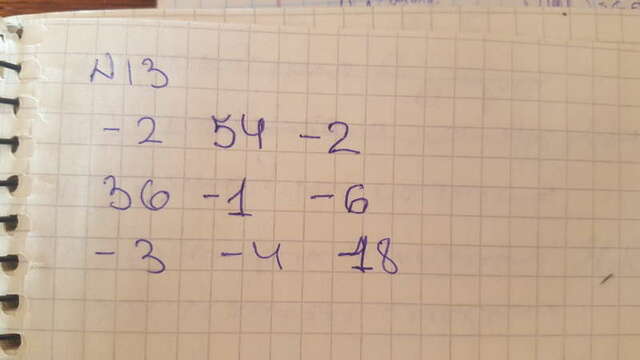 N13
-2 54 -2
36 -1 -6
-3 -4 18